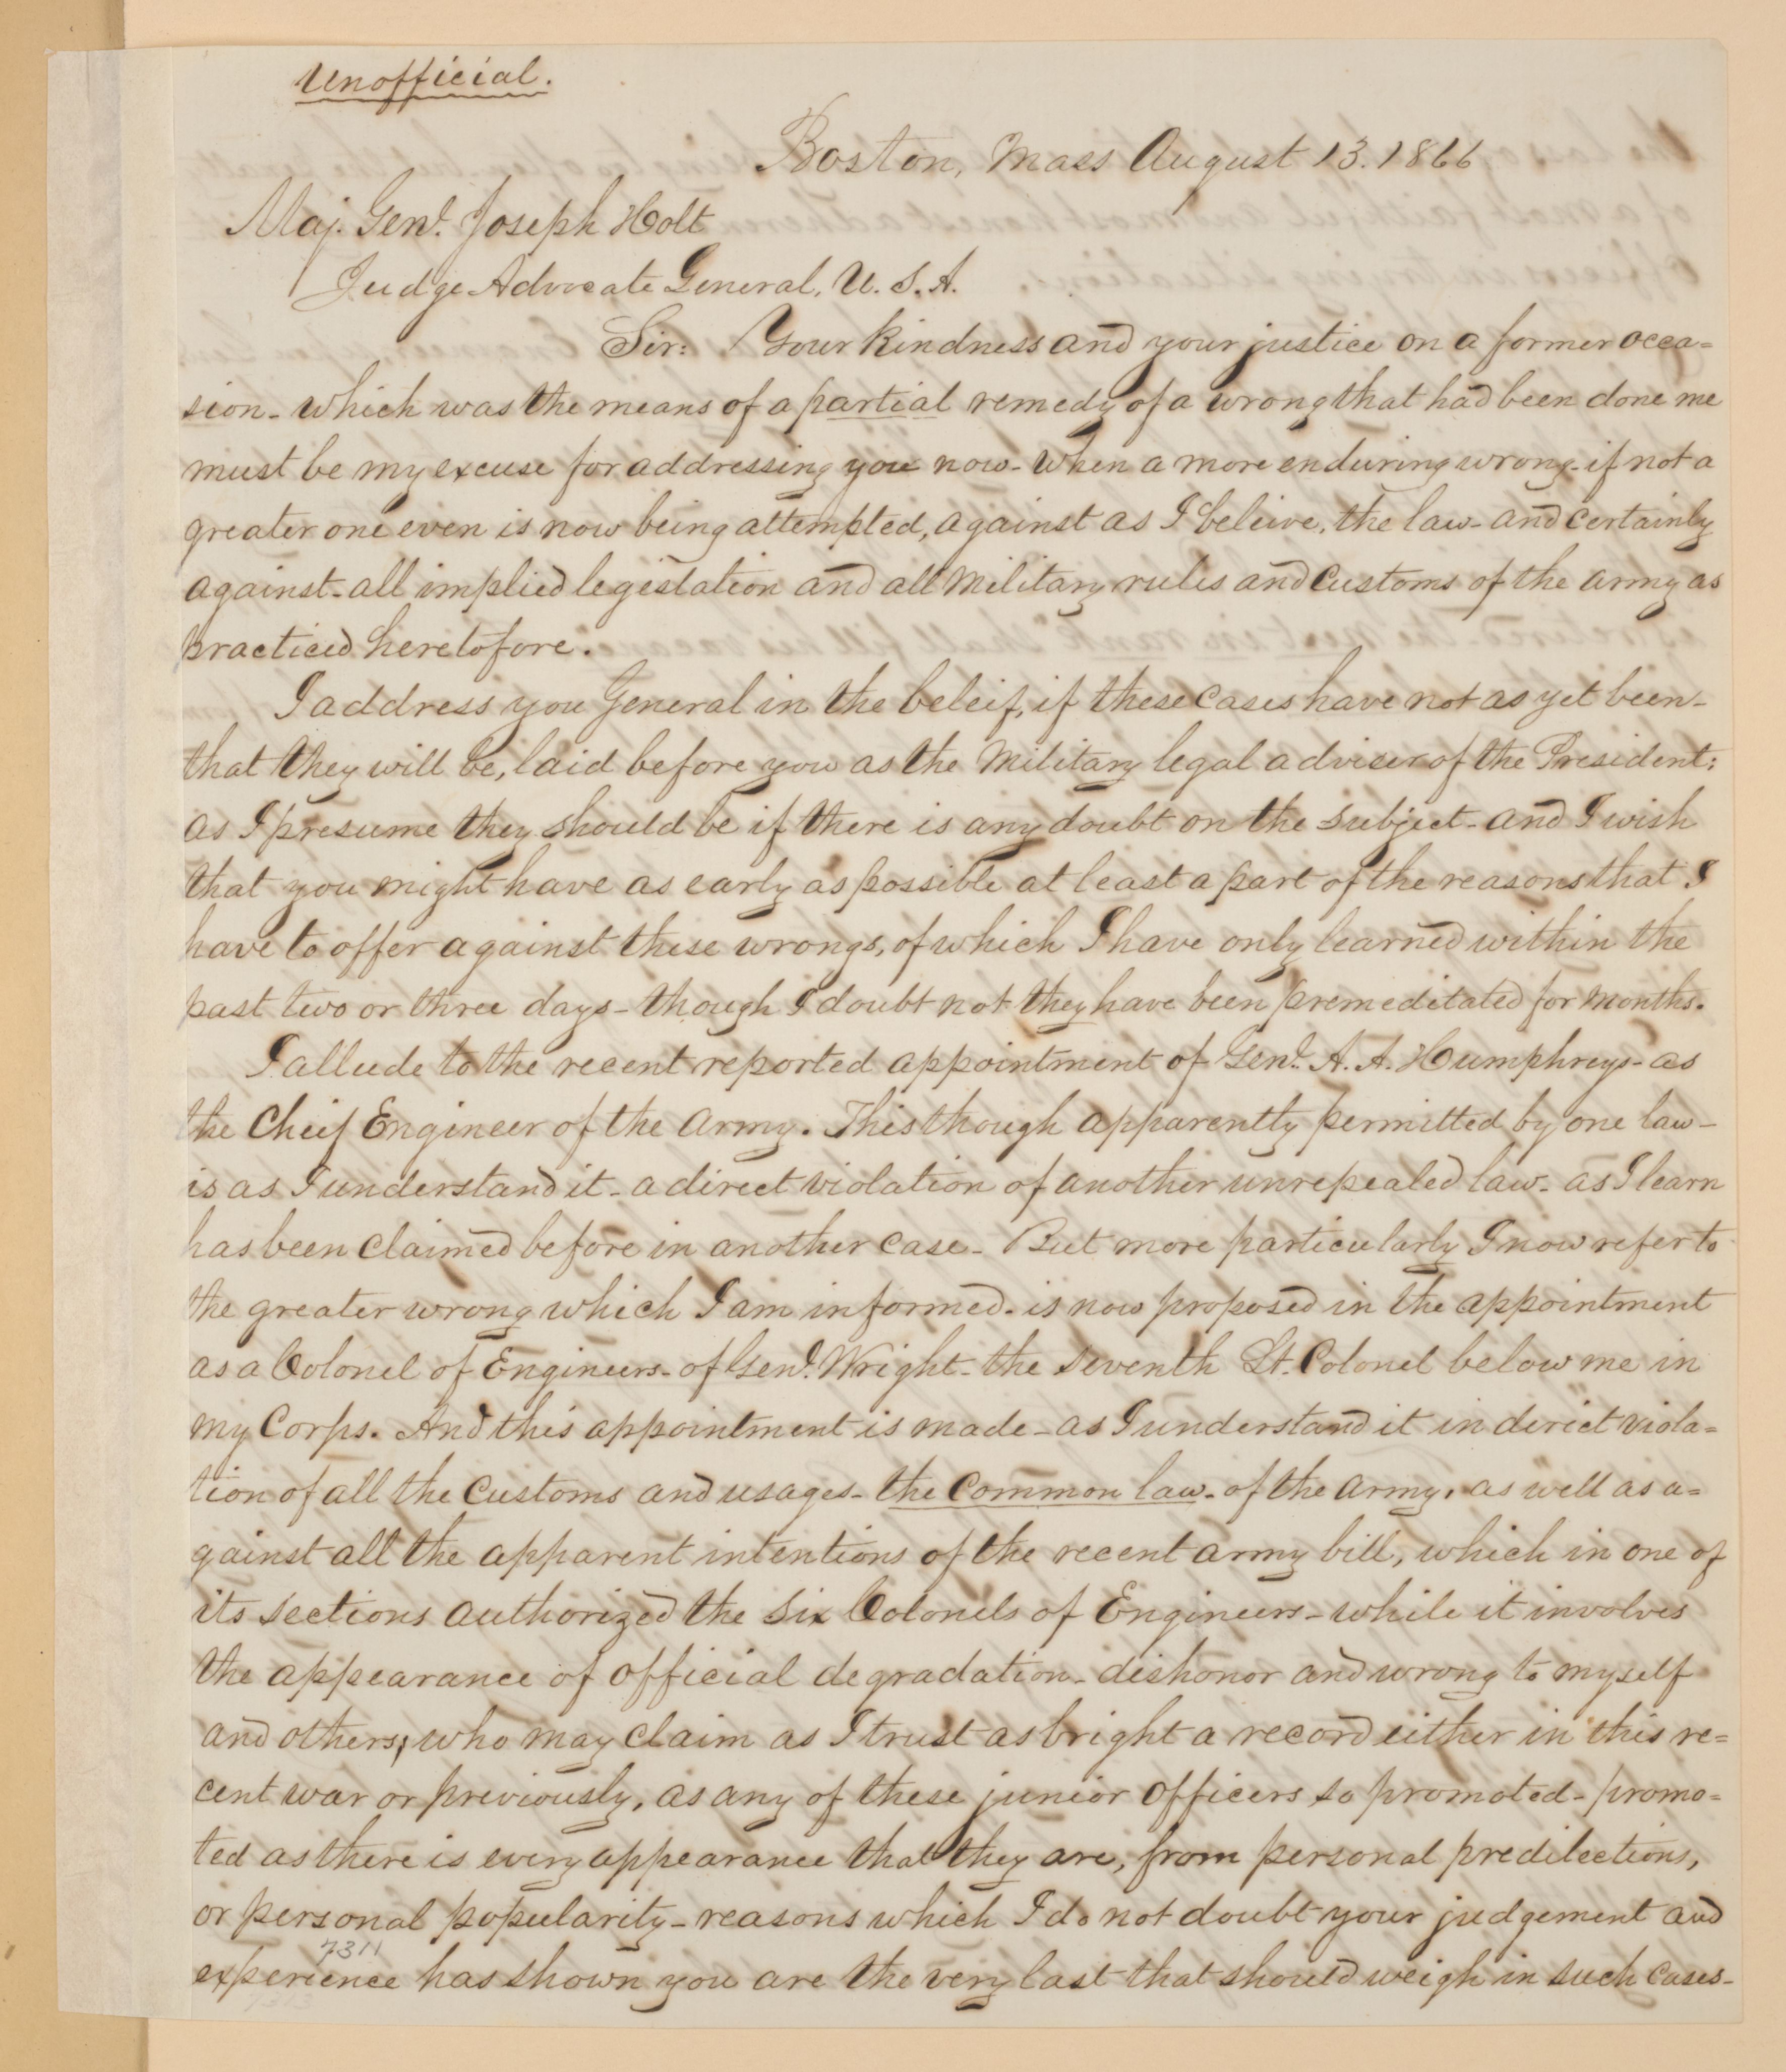 Unofficial.
Boston, Mass August 13. 1866
Maj. Genl. Joseph Holt
Judge Advocate General, U. S. A.
Sir: Your kindness and your justice on a former occa=
sion - which was the means of a partial remedy of a wrong that had been done me
must be my excuse for addressing you now - when a more enduring wrong - if not a
greater one even is now being attempted, against as I beleive, the law - and certainly
against - all implied legislation and all military rules and customs of the army as
practiced heretofore.
I address you General in the beleif, if these cases have not as yet been -
that they will be, laid before you as the military legal adviser of the President:
as I presume they should be if there is any doubt on the subject - and I wish
that you might have as early as possible at least a part of the reasons that I
have to offer against these wrongs, of which I have only learned within the
past two or three days - though I doubt not they have been premeditated for months.
I allude to the recent reported appointment of Genl. A. A. Humphreys - as
the Chief Engineer of the Army. This though apparently permitted by one law -
is as I understand it - a direct violation of another unrepealed law - as I learn
has been claimed before in another case - But more particularly I now refer to
the greater wrong which I am informed - is now proposed in the appointment
as a Colonel of Engineers - of Genl. Wright - the seventh Lt. Colonel below me in
my Corps. And this appointment is made - as I understand it in direct viola=
tion of all the customs and usages - the common law - of the army, as well as a=
gainst all the apparent intentions of the recent army bill, which in one of
its sections authorized the six Colonels of Engineers - while it involves
the appearance of official degradation - dishonor and wrong to myself
and others, who may claim as I trust as bright a record either in this re=
cent war or previously, as any of these junior officers so promoted - promo=
ted as there is every appearance that they are, from personal predilections,
or personal popularity - reasons which I do not doubt your judgement and
7311
experience has shown you are the very last that should weigh in such cases -